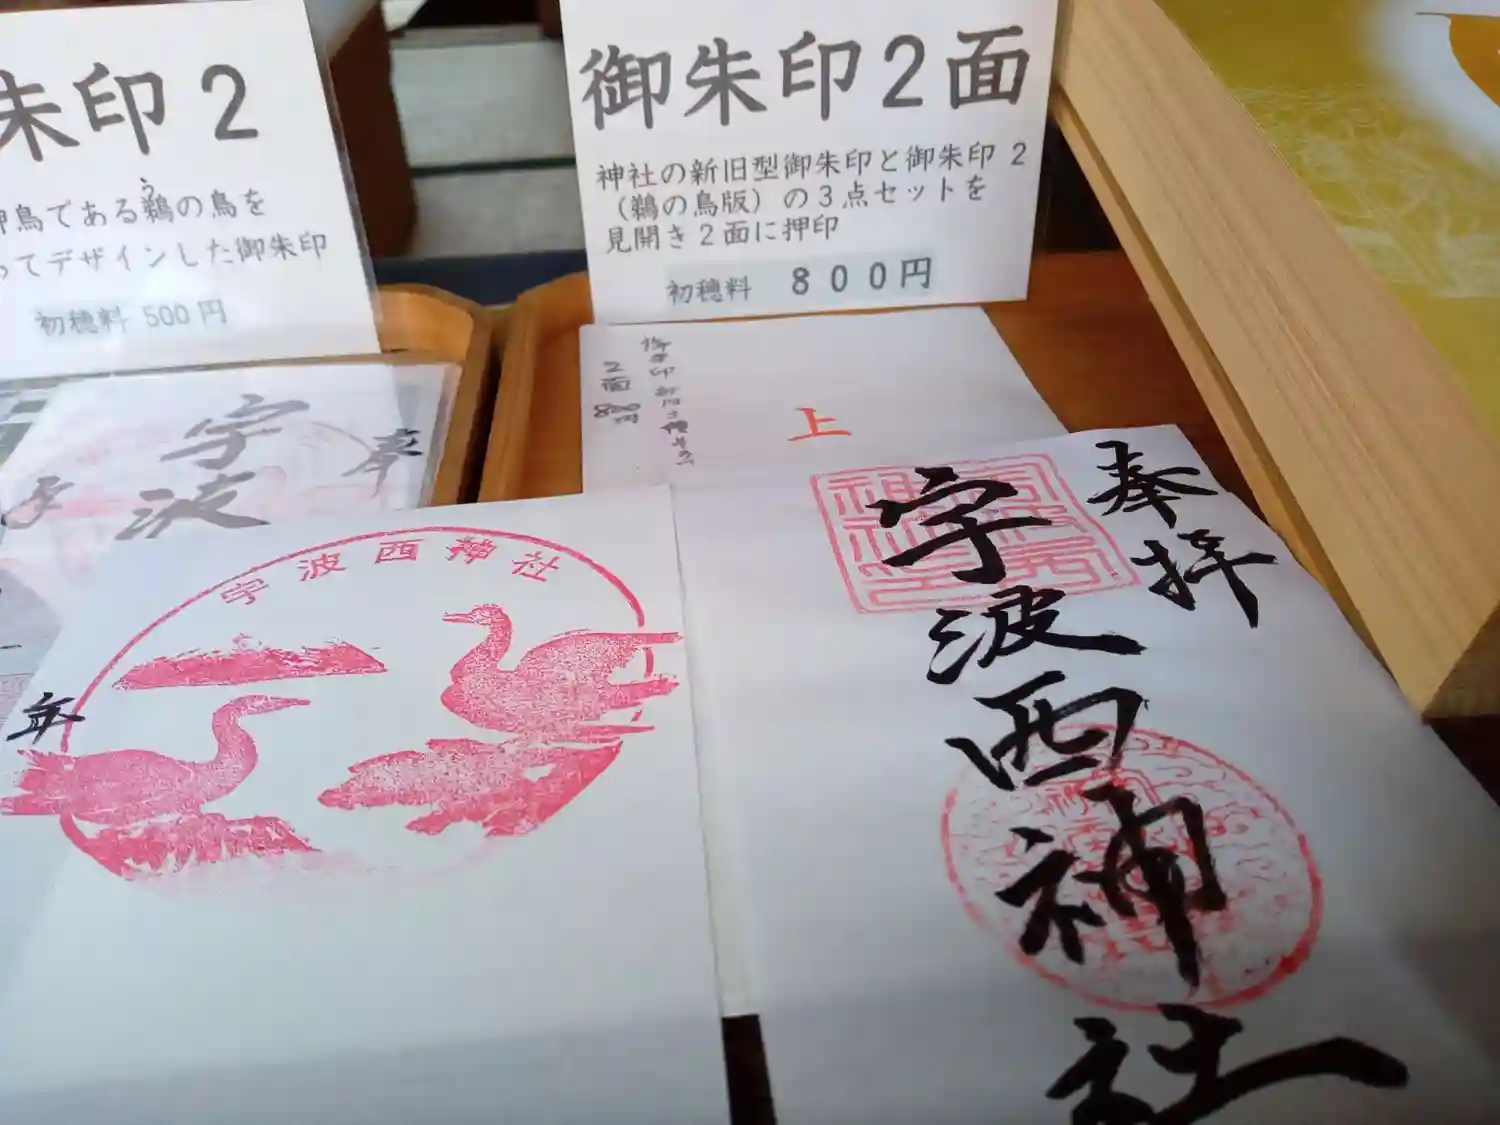 朱印2
神鳥である鵜の鳥を
ってデザインした御朱印
初穂料 500円
御朱印2面
神社の新旧型御朱印と御朱印 2
（鵜の鳥版）の3点セットを
見開き2面に押印
初穂料 800円
2面 800円
上
宇波
奉
宇波西神社
年
奉拝
宇波西神社